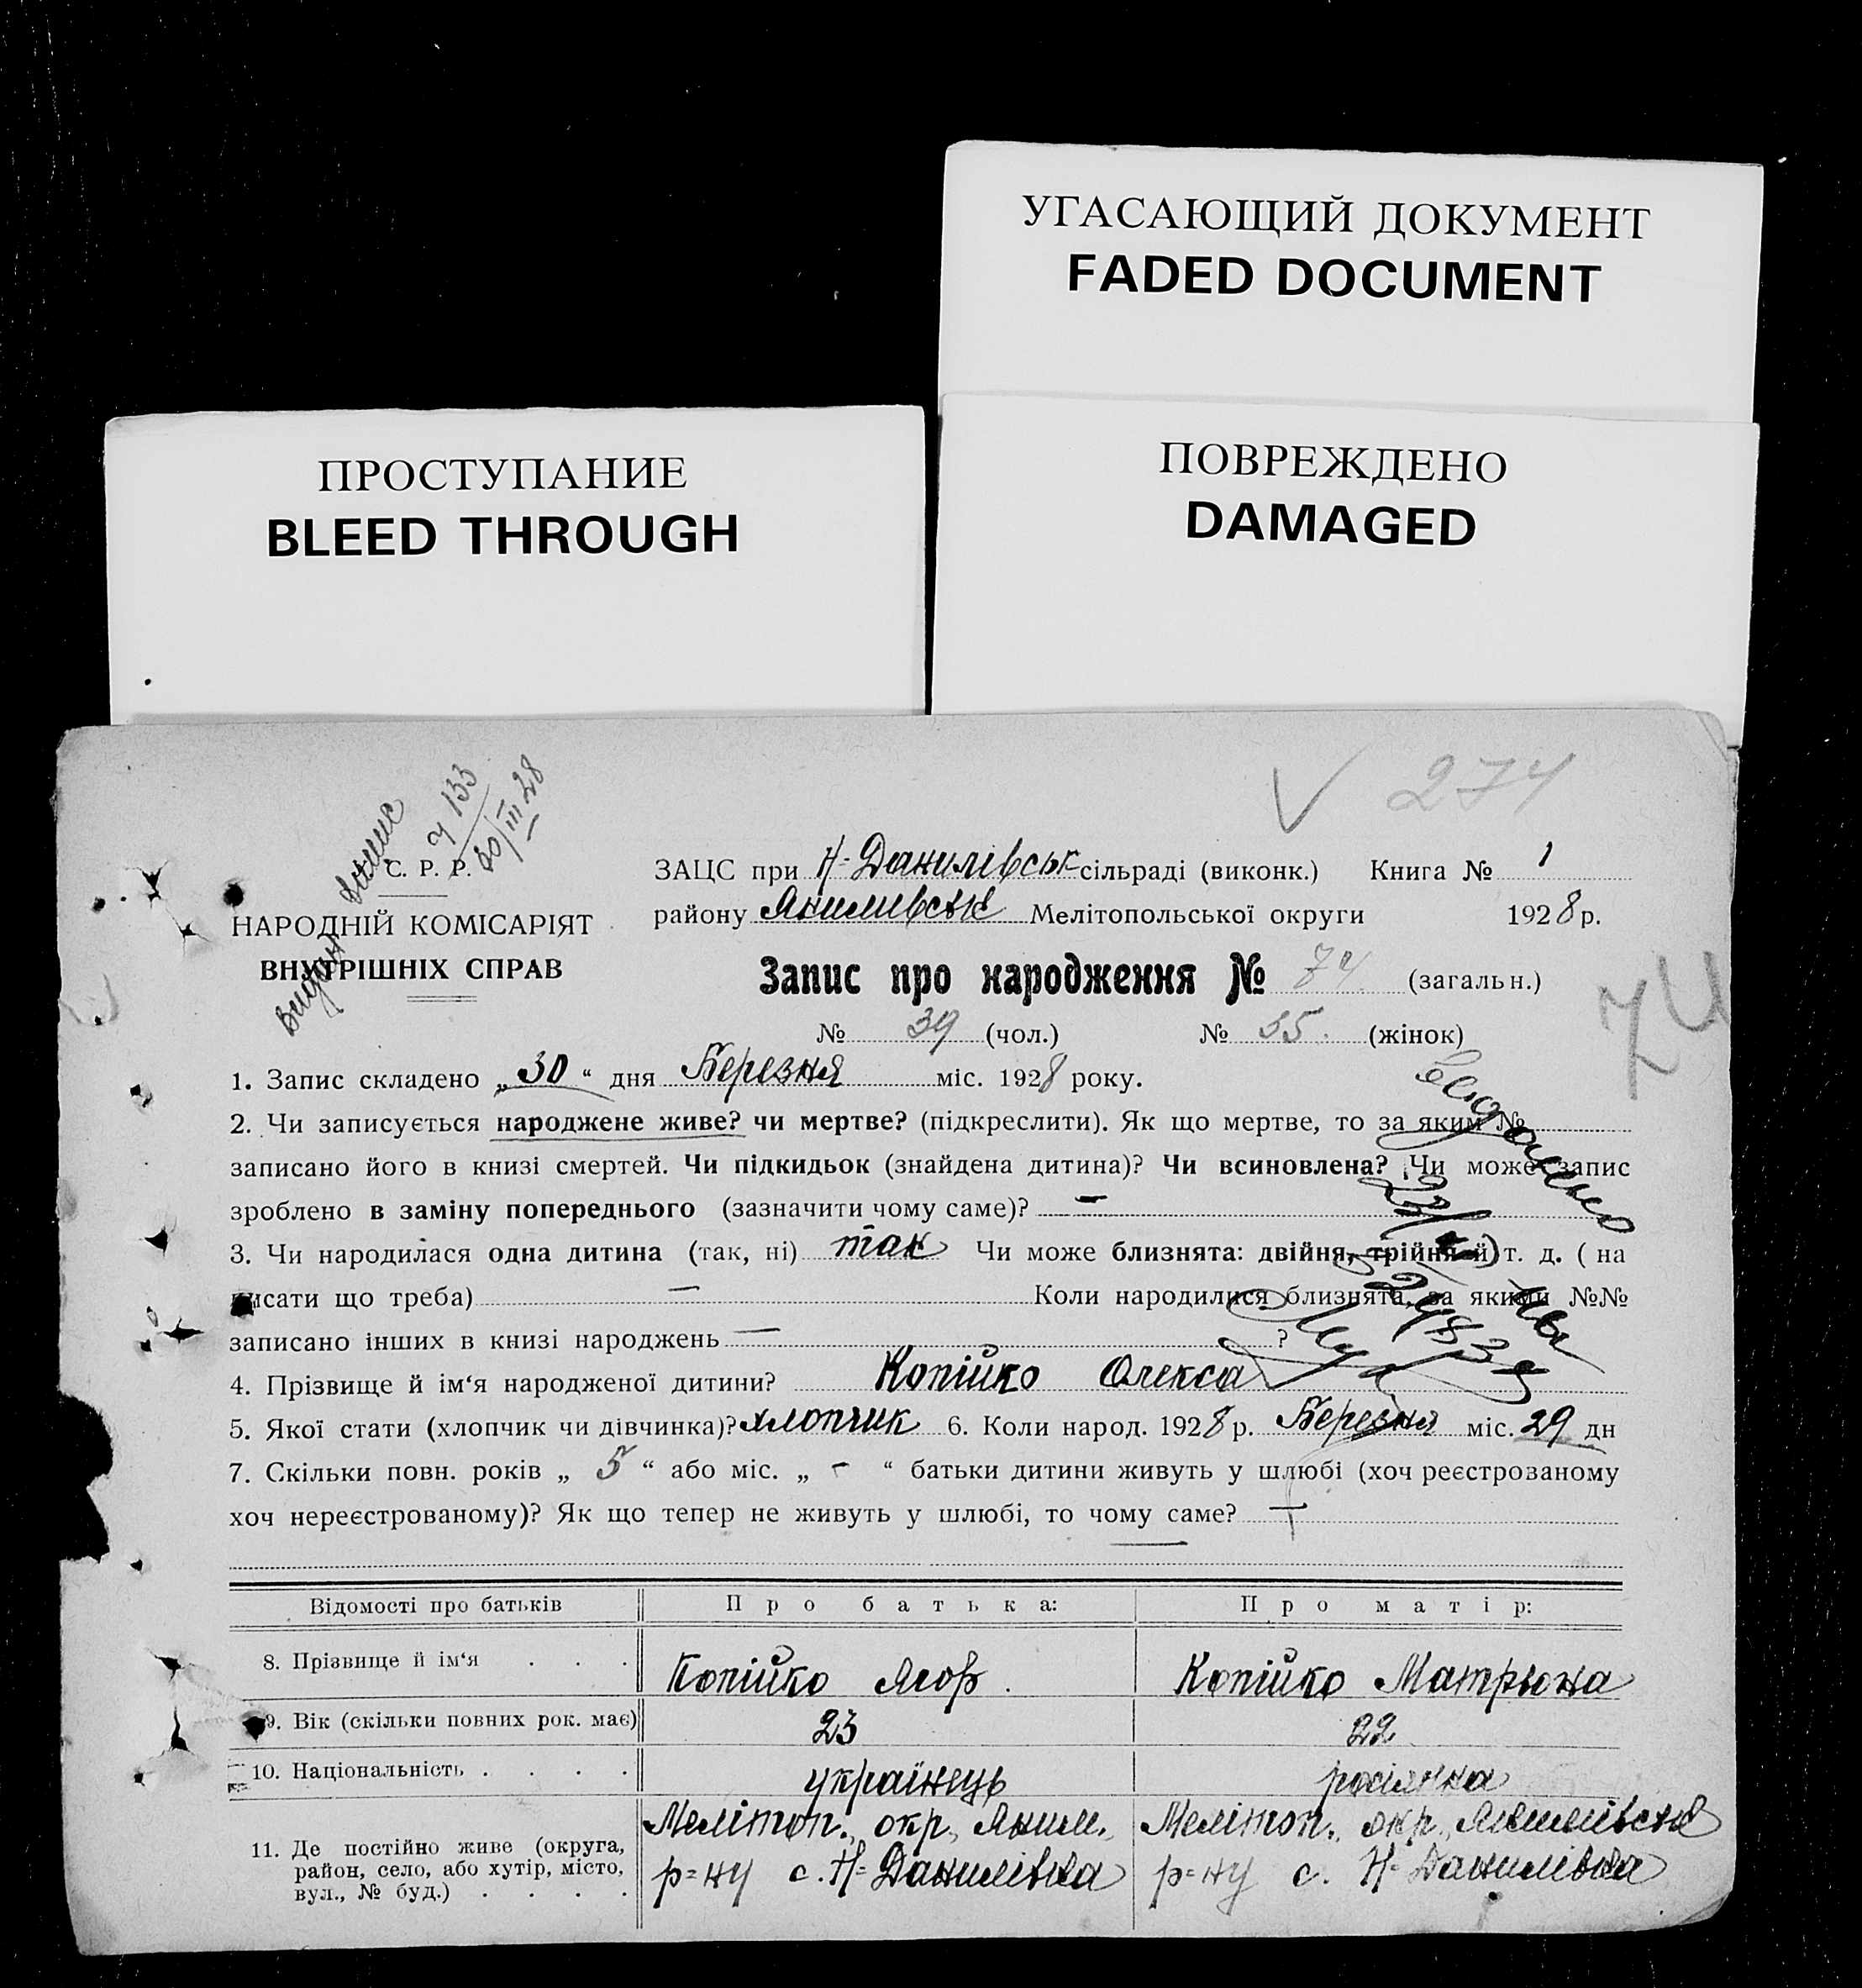 УГАСАЮЩИЙ ДОКУМЕНТ
FADED DOCUMENT
ПРОСТУПАНИЕ
BLEED THROUGH
ПОВРЕЖДЕНО
DAMAGED
274
Видан
133
30/III 28
С. Р. Р.
НАРОДНІЙ КОМІСАРІЯТ
ВНУТРІШНІХ СПРАВ
ЗАЦС при Н-Данилівськ сільраді (виконк.) Книга № 1
району Якимивські Мелітопольської округи 1928 р.
Запис про народження № 74 (загальн.)
74
№ 39 (чол.) № 35. (жінок)
1. Запис складено „30“ дня Березня міс. 1928 року.
2. Чи записується народжене живе? чи мертве? (підкреслити). Як що мертве, то за яким №
записано його в книзі смертей. Чи підкидьок (знайдена дитина)? Чи всиновлена? Чи може запис
зроблено в заміну попереднього (зазначити чому саме)? —
3. Чи народилася одна дитина (так, ні) так Чи може близнята: двійня, трійня й т. д. ( на
писати що треба) — Коли народилися близнята, за якими №№
записано інших в книзі народжень — ?
4. Прізвище й ім‘я народженої дитини? Копійко Олекса
5. Якої стати (хлопчик чи дівчинка)? хлопчик 6. Коли народ. 1928 р. Березня міс. 29 дн
7. Скільки повн. років „ 5 “ або міс. „ - “ батьки дитини живуть у шлюбі (хоч реєстрованому
хоч нереєстрованому)? Як що тепер не живуть у шлюбі, то чому саме? —
Відомості про батьків Про батька: Про матір:
8. Прізвище й ім‘я . . . Копійко Ягор. Копійко Матрьона
9. Вік (скільки повних рок. має) 23 22
10. Національність . . . . українець росіянка
11. Де постійно живе (округа, район, село, або хутір, місто, вул., № буд.) . . . .
Мелітоп. окр. Яким. р=ну с. Н-Данилівка
Мелітоп. окр. р=ну с. Н-Данилівка